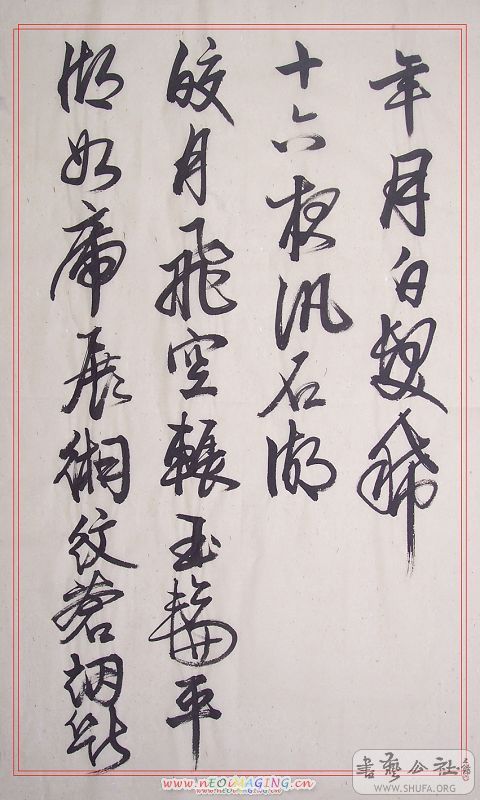 年月白髮稀
十六夜汎石湖
皎月飛空輾玉輪平
湖如席展緗紋蒼烟斷
www.nEOiMAGiNG.cn
書藝公社
WWW.SHUFA.ORG